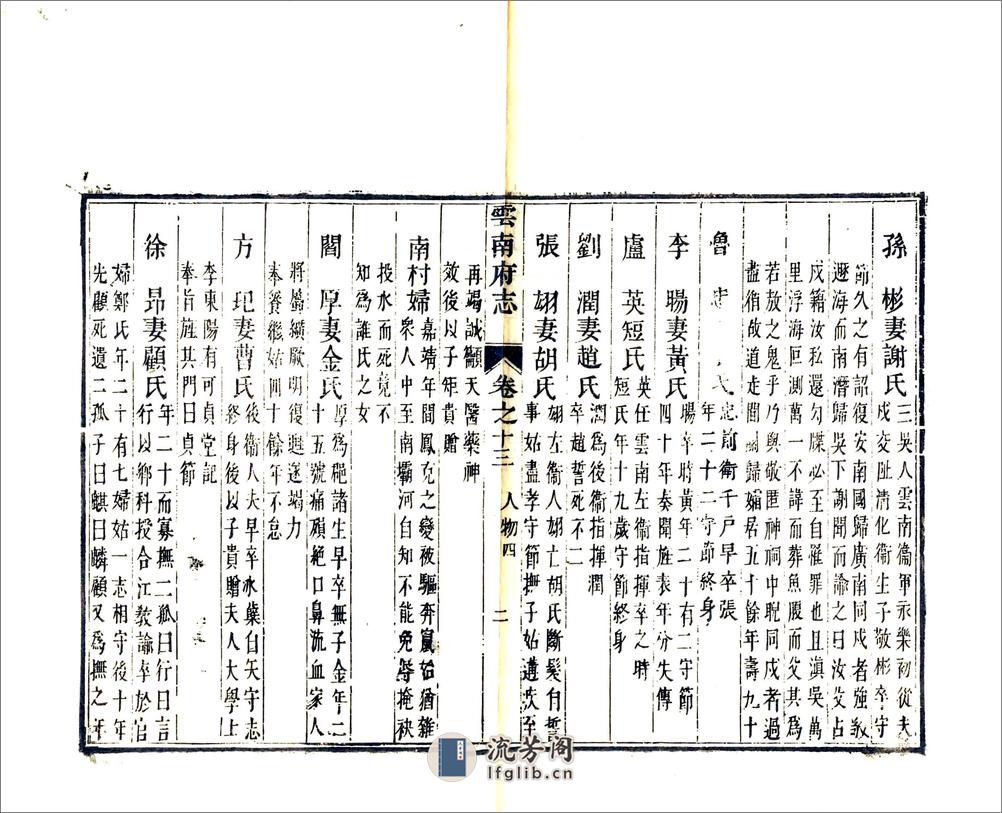 孫 彬妻謝氏三吳人雲南衞軍永樂初從夫
戍交趾清化衞生子敬彬卒守
節久之有詔復安南國歸廣南同戍者強敘
遯海而南潛歸吳下謝聞而諭之曰汝父占
戍籍汝私還勾牒必至自罹罪也且滇吳萬
里浮海回測萬一不諱而葬魚腹而父其爲
若敖之鬼乎乃與敬匿神祠中聣同戍者過
盡徇故道走間關歸孀居五十餘年壽九十
魯 氏定前衛千戶早卒張
年二十二守節終身
李 暘妻黃氏暘卒時黃年二十有二守節
四十年奏聞旌表年分失傳
盧 英短氏英任雲南左衞指揮卒之時
短氏年十九歲守節終身
劉 潤妻趙氏潤爲後衞指揮潤
卒趙誓死不二
張 翃妻胡氏翃左衞人翃亡胡氏斷髮自誓
事姑盡孝守節撫子姑遘疾至
雲南府志 卷之十三 人物四 二
再竭誠籲天醫藥神
效後以子矩貴贈
南村婦嘉靖年間鳳克之變被驅奔竄始猶雜
衆人中至南霸河自知不能免辱掩袂
投水而死竟不
知爲誰氏之女
閻 厚妻金氏厚爲郡諸生早卒無子金年二
十五號痛殞絕口鼻流血家人
將屬纊厥明復甦遂竭力
奉養繼姑四十餘年不怠
方 玘妻曹氏後衞人夫早卒氷蘗自矢守志
終身後以子貴贈夫人大學士
李東陽有可貞堂記
奉旨旌其門曰貞節
徐 昻妻顧氏年二十而寡撫二孤曰行曰言
行以鄉科授合江教諭卒於官
婦鄭氏年二十有七婦姑一志相守後十年
先顧死遺二孤子曰麒曰麟顧又爲撫之年
流芳阁
lfglib.cn